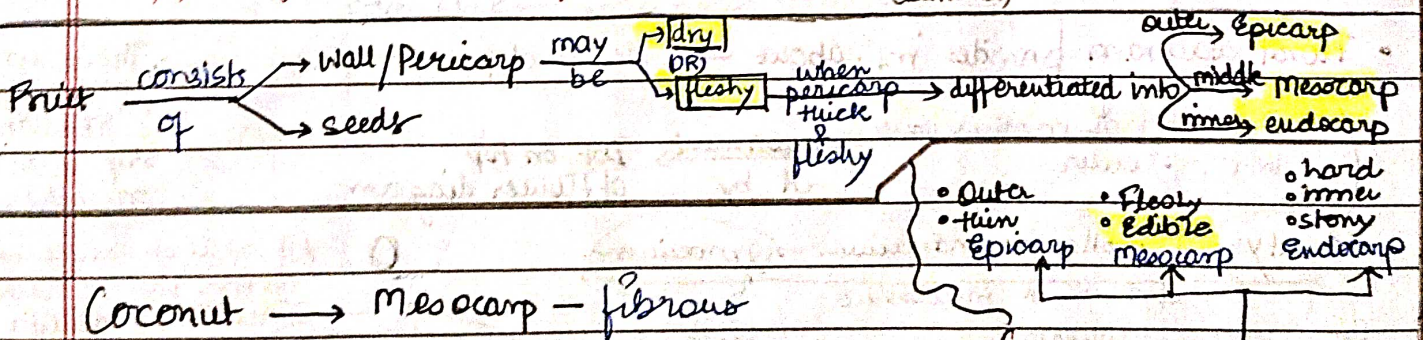 Fruit consists of → wall/Pericarp may be → dry
OR
→ fleshy when pericarp thick & fleshy → differentiated into outer → Epicarp
middle → Mesocarp
inner → endocarp
→ seeds
• Outer
• thin
Epicarp
• Fleshy
• Edible
Mesocarp
• hard
• inner
• stony
Endocarp
Coconut → Mesocarp - fibrous